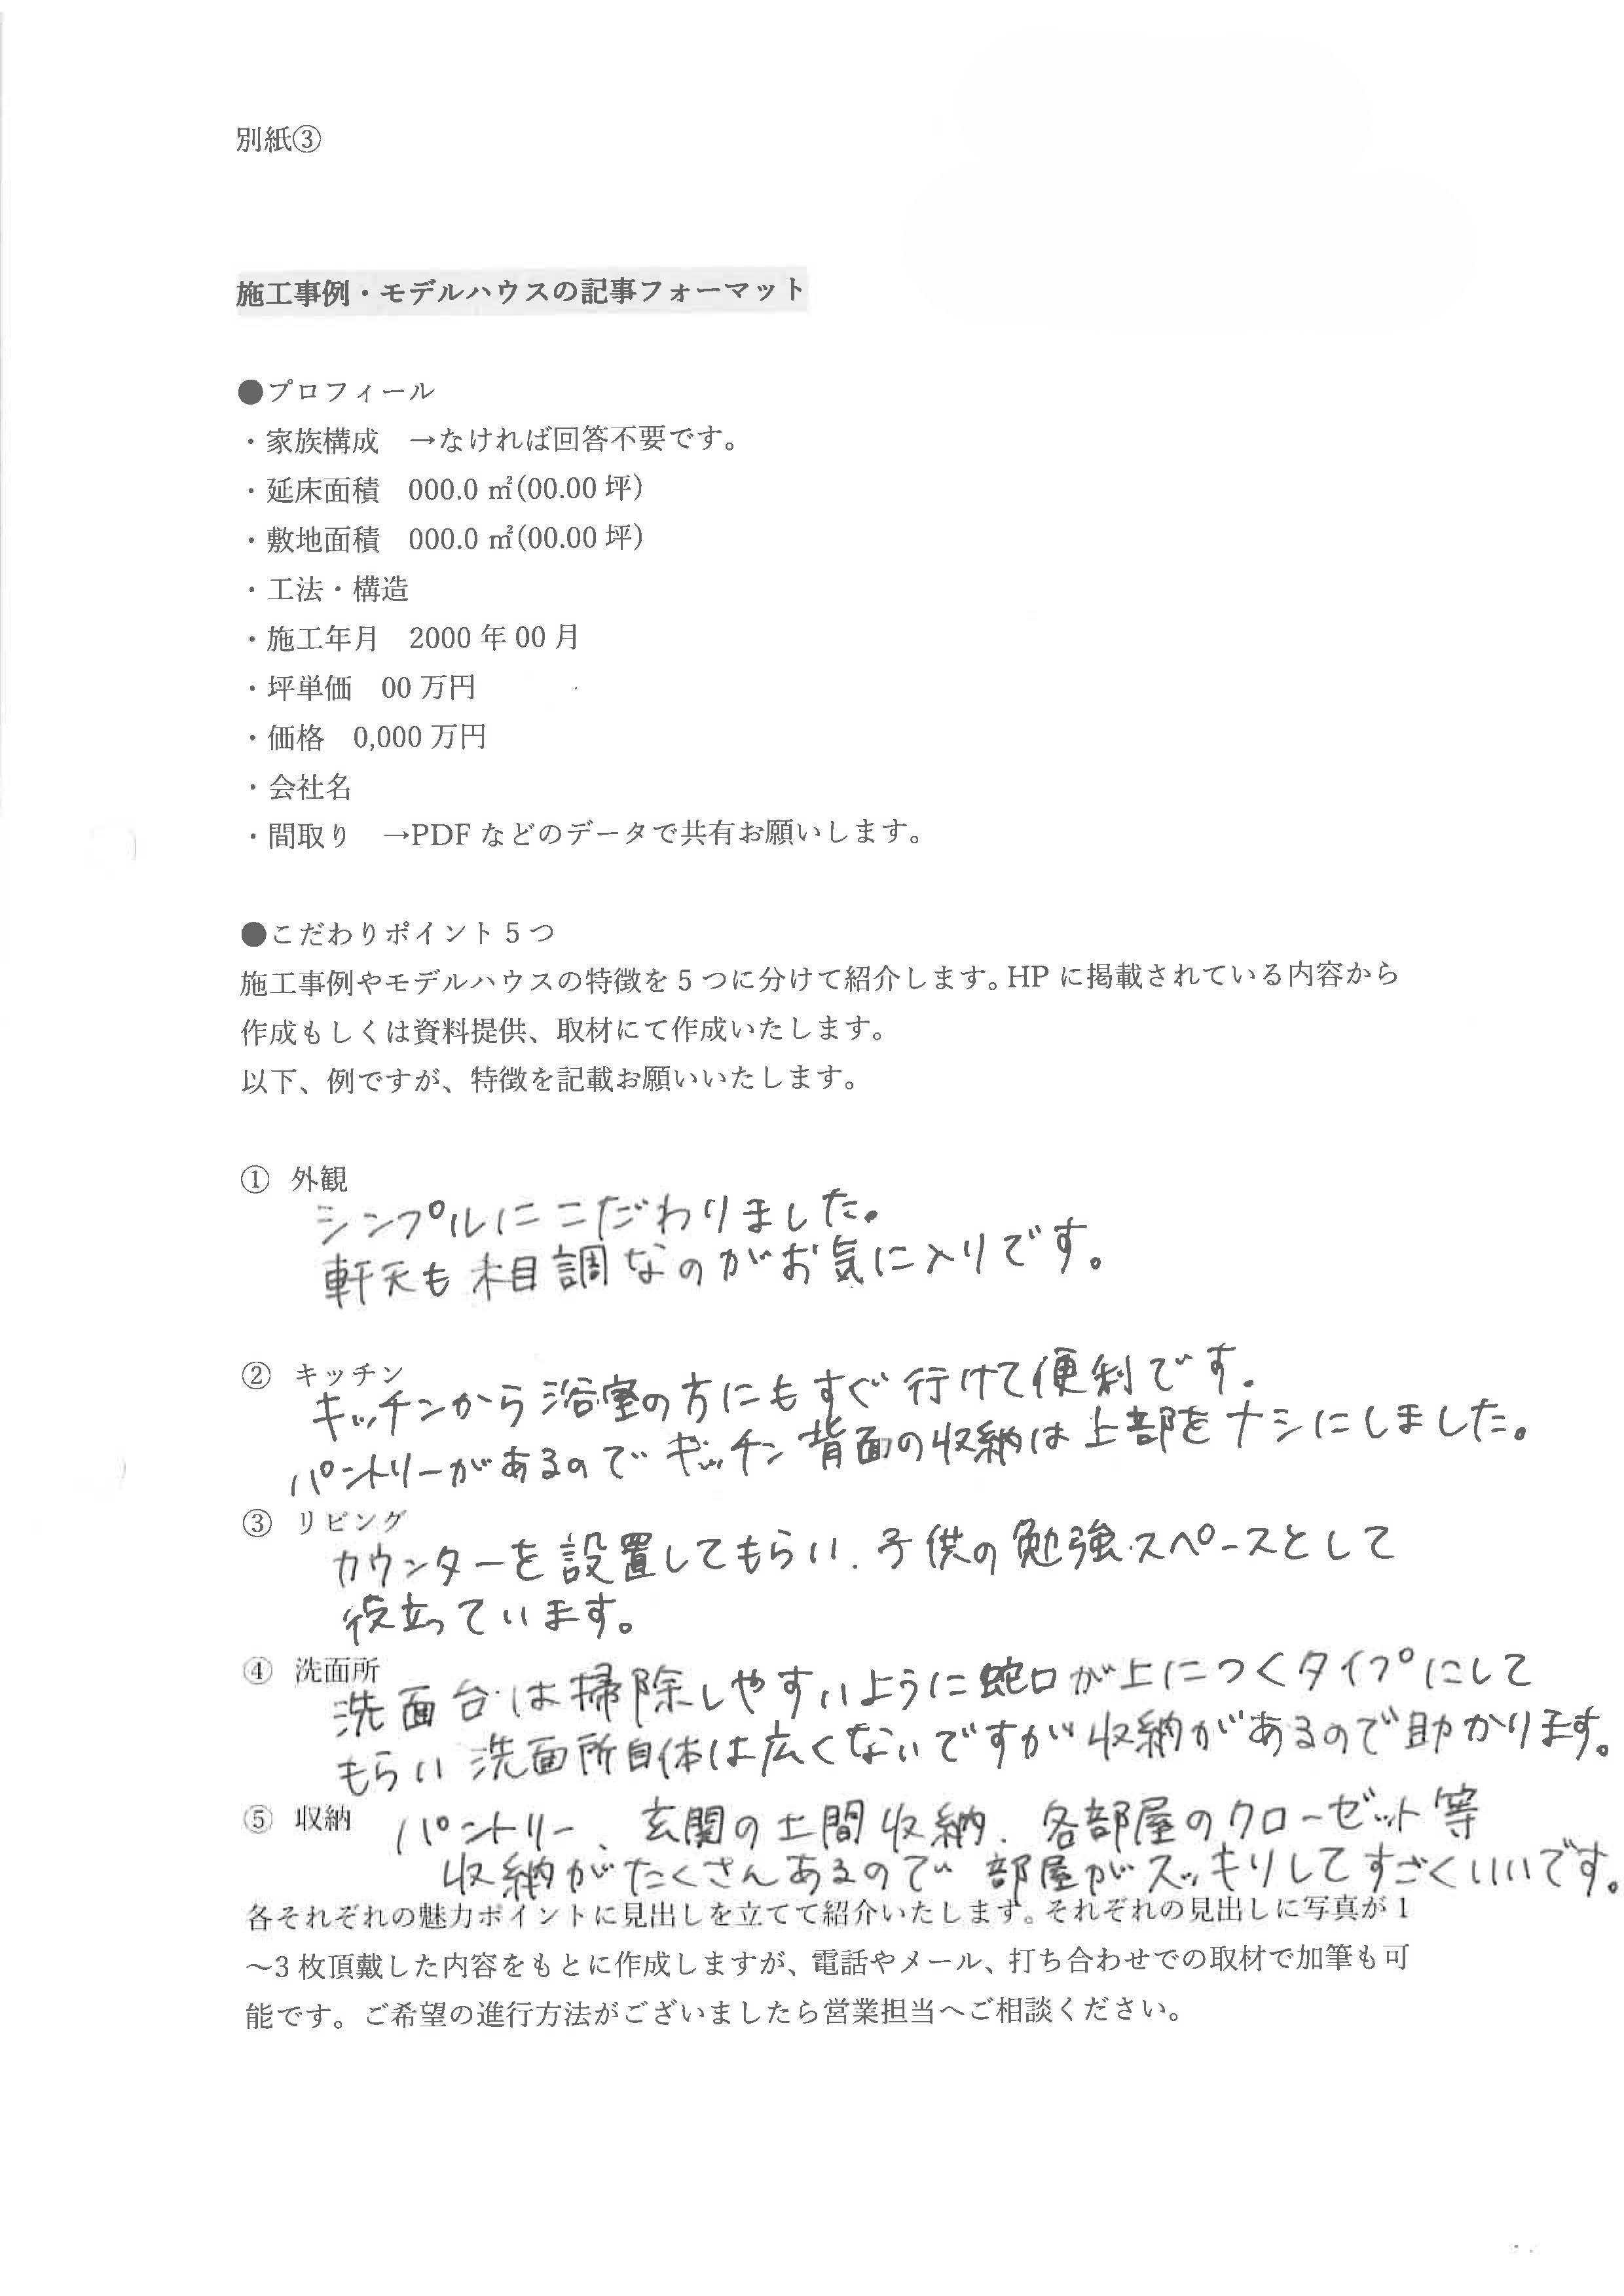 別紙③
施工事例・モデルハウスの記事フォーマット
●プロフィール
・家族構成　→なければ回答不要です。
・延床面積　000.0 ㎡(00.00 坪)
・敷地面積　000.0 ㎡(00.00 坪)
・工法・構造
・施工年月　2000 年 00 月
・坪単価　00 万円
・価格　0,000 万円
・会社名
・間取り　→PDF などのデータで共有お願いします。
●こだわりポイント 5 つ
施工事例やモデルハウスの特徴を 5 つに分けて紹介します。HP に掲載されている内容から
作成もしくは資料提供、取材にて作成いたします。
以下、例ですが、特徴を記載お願いいたします。
① 外観
シンプルにこだわりました。
軒天も木目調なのがお気に入りです。
② キッチン
キッチンから浴室の方にもすぐ行けて便利です。
パントリーがあるのでキッチン背面の収納は上部をナシにしました。
③ リビング
カウンターを設置してもらい、子供の勉強スペースとして
役立っています。
④ 洗面所
洗面台は掃除しやすいように蛇口が上につくタイプにして
もらい洗面所自体は広くないですが収納があるので助かります。
⑤ 収納 パントリー、玄関の土間収納、各部屋のクローゼット等
収納がたくさんあるので部屋がスッキリしてすごくいいです。
各それぞれの魅力ポイントに見出しを立てて紹介いたします。それぞれの見出しに写真が 1
～3 枚頂戴した内容をもとに作成しますが、電話やメール、打ち合わせでの取材で加筆も可
能です。ご希望の進行方法がございましたら営業担当へご相談ください。